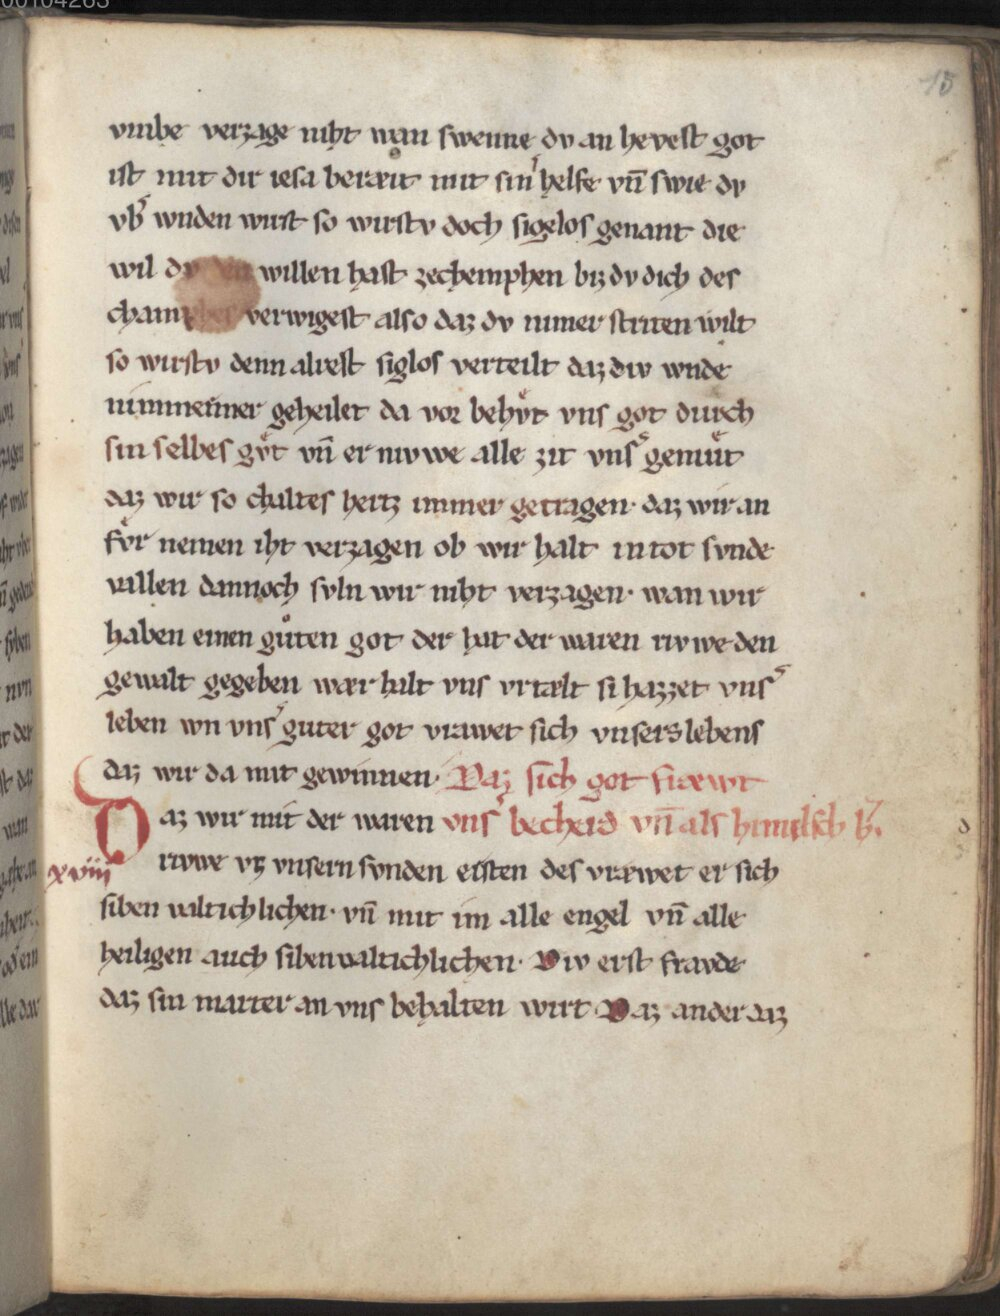 15
vmbe verzage niht wan swenne dv an hevest got
ist mit dir iesa beræit mit sin͛ helfe vn̄ swie dv
vb͛ wnden wirst so wirstv doch sigelos genant die
wil dv den willen hast zechemphen biz dv dich des
champhes verwigest also daz dv nimer striten wilt
so wirstv denn alrest siglos verteilt daz div wnde
nimmermer geheilet da vor behv̊t vns got durch
sin selbes gv̊t vn̄ er niwe alle zit vns͛ gemv̊t
daz wir so chaltes hertz immer getragen· daz wir an
fv̊r nemen iht verzagen ob wir halt in tot svnde
vallen dannoch svln wir niht verzagen· wan wir
haben einen gůten got der hat der waren rivwe den
gewalt gegeben wær halt vns vrtælt si hazzet vns͛
leben wn vns͛ guter got vrawet sich vnsers lebens
daz wir da mit gewinnen· Daz sich got fræwt
Daz wir mit der waren vns͛ becherd vn̄ als himilsch h͛.
xviii rivwe vz vnsern svnden ersten des vræwet er sich
siben valtichlichen· vn̄ mit im alle engel vn̄ alle
heiligen auch siben valtichlichen· Div erst fravde
daz sin marter an vns behalten wirt Daz ander daz